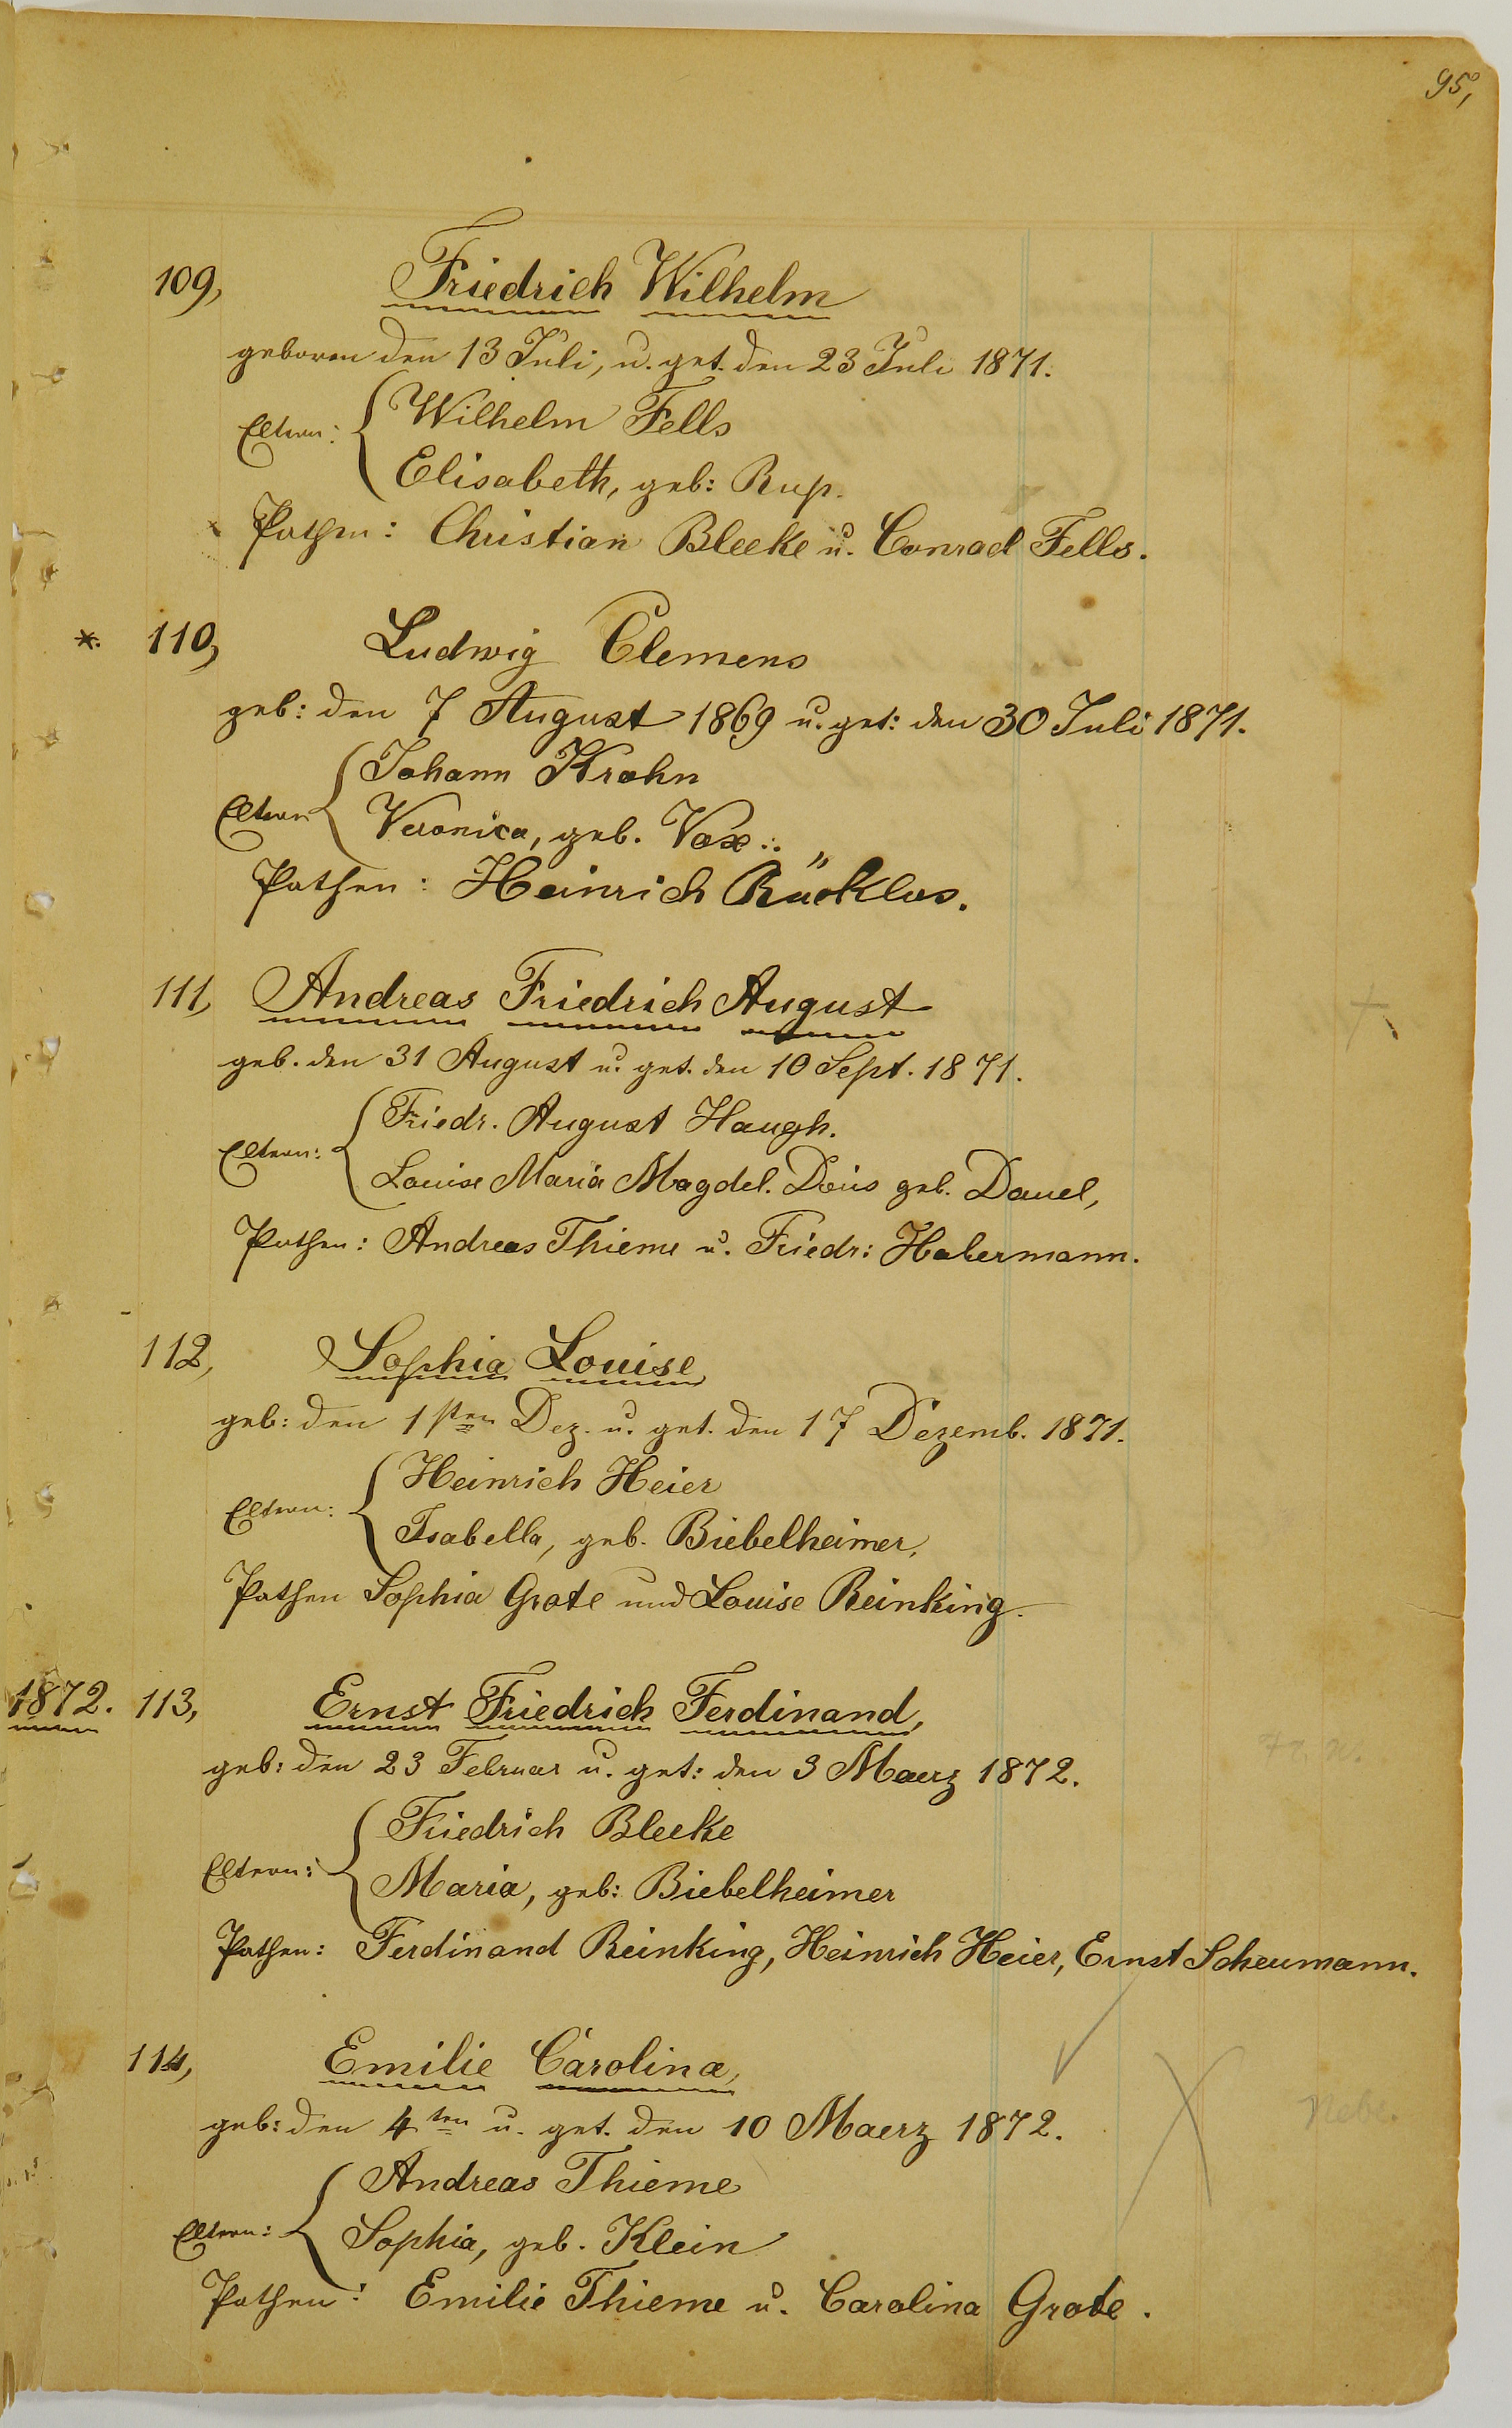 95,
109, Friedrich Wilhelm
geboren den 13 Juli, u. get. den 23 Juli 1871.
Eltern: Wilhelm Fells
Elisabeth, geb: Rup.
Pathen: Christian Bleeke u. Conrad Fells.
*. 110, Ludwig Clemens
geb: den 7 August 1869 u. get: den 30 Juli 1871.
Eltern Johann Krohn
Veronica, geb. Vox.
Pathen: Heinrich
111, Andreas Friedrich August
geb. den 31 August u. get. den 10 Sept. 1871.
Eltern: Friedr. August Haugh.
Louise Maria Magdel. Doris geb. Dauel,
Pathen: Andreas Thieme u. Friedr: Habermann.
112, Sophia Louise
geb: den 1sten Dez. u. get. den 17 Dezemb. 1871.
Eltern: Heinrich Heier
Isabella, geb. Biebelheimer,
Pathen Sophia Grote und Louise Reinking.
1872. 113, Ernst Friedrich Ferdinand,
geb: den 23 Februar u. get: den 3 Maerz 1872.
Eltern: Friedrich Bleeke
Maria, geb: Biebelheimer
Pathen: Ferdinand Reinking, Heinrich Heier, Ernst Scheumann.
114, Emilie Carolina,
geb: den 4ten u. get. den 10 Maerz 1872.
Eltern: Andreas Thieme
Sophia, geb. Klein
Pathen: Emilie Thieme u. Carolina Grote.